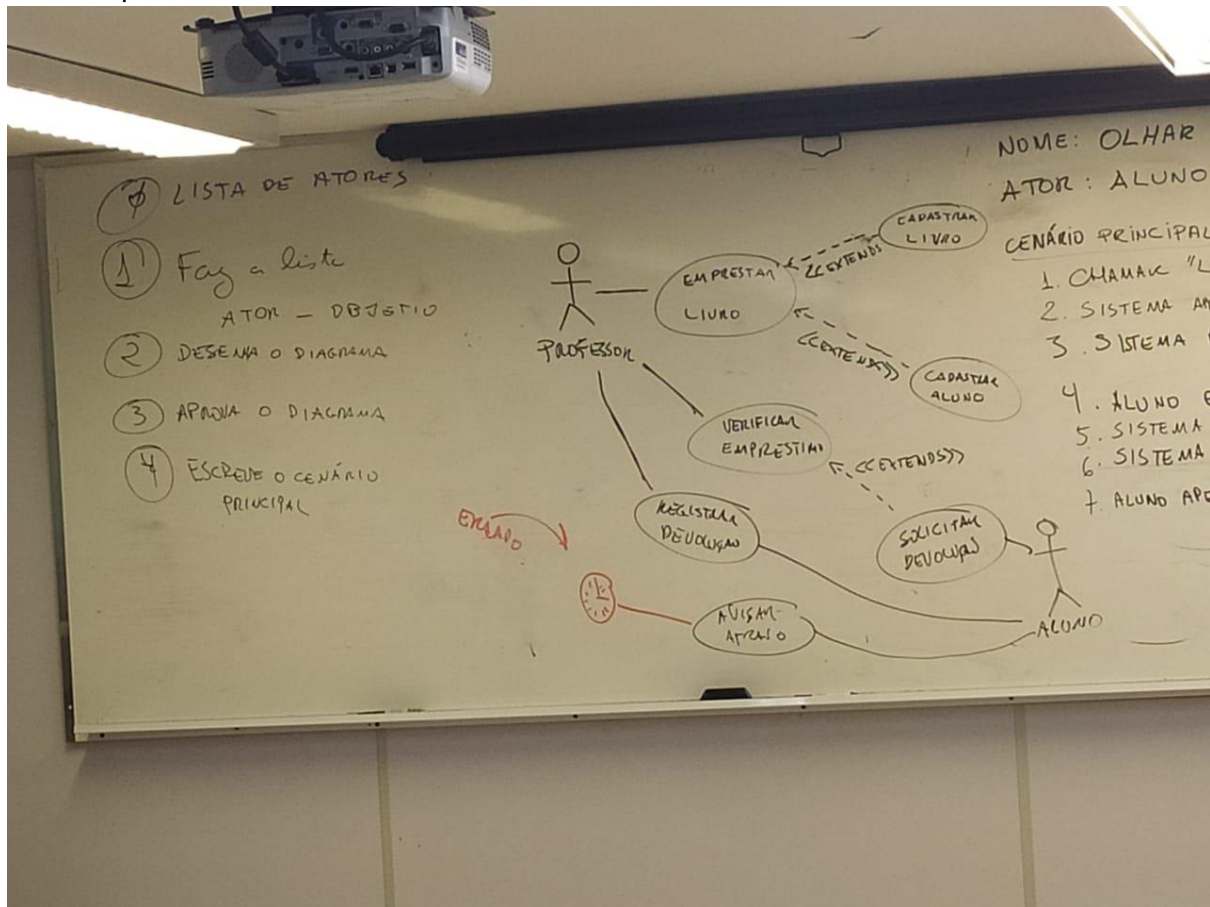 Ø LISTA DE ATORES
1 Faz a lista
ATOR – OBJETIO
2 DESENHA O DIAGRAMA
3 APROVA O DIAGRAMA
4 ESCREVE O CENÁRIO
PRINCIPAL
PROFESSOR
EMPRESTAR
LIVRO
<<EXTENDS
CADASTRAR
LIVRO
<<EXTENDS>>
CADASTRAR
ALUNO
VERIFICAR
EMPRESTIMO
<<EXTENDS>>
REGISTRAR
DEVOLUÇÃO
SOLICITAR
DEVOLUÇÃO
ERRADO
AVISAR
ATRASO
ALUNO
NOME: OLHAR
ATOR: ALUNO
CENÁRIO PRINCIPAL
1. CHAMAR "L
2. SISTEMA
3. SISTEMA
4. ALUNO E
5. SISTEMA
6. SISTEMA
7. ALUNO APE